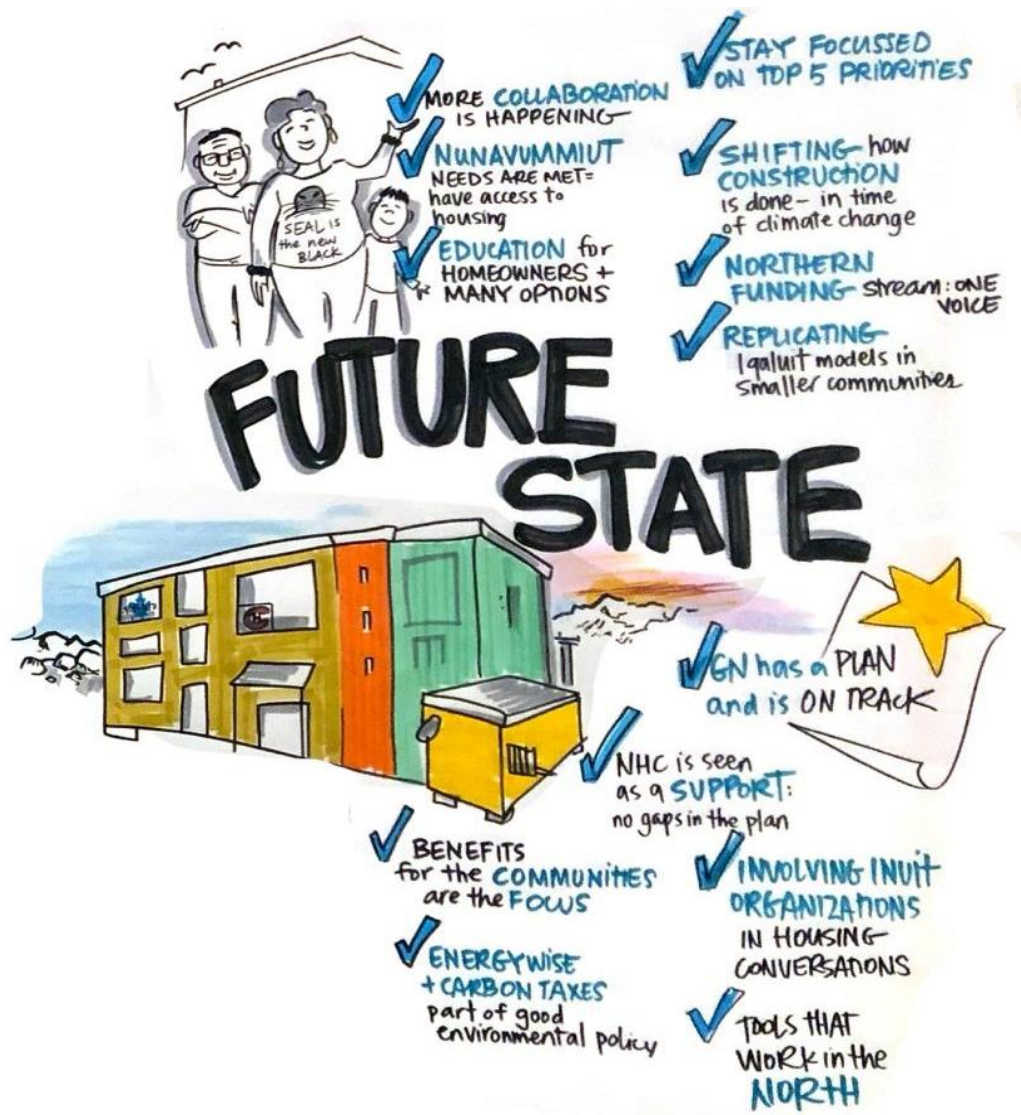 MORE COLLABORATION
IS HAPPENING
NUNAVUMMIUT
NEEDS ARE MET=
have access to
housing
EDUCATION for
HOMEOWNERS +
MANY OPTIONS
SEAL IS
the new
BLACK
STAY FOCUSSED
ON TOP 5 PRIORITIES
SHIFTING how
CONSTRUCTION
is done – in time
of climate change
NORTHERN
FUNDING stream: ONE
VOICE
REPLICATING
Iqaluit models in
smaller communities
FUTURE
STATE
GN has a PLAN
and is ON TRACK
NHC is seen
as a SUPPORT:
no gaps in the plan
BENEFITS
for the COMMUNITIES
are the FOCUS
ENERGYWISE
+ CARBON TAXES
part of good
environmental policy
INVOLVING INUIT
ORGANIZATIONS
IN HOUSING
CONVERSATIONS
TOOLS THAT
WORK in the
NORTH